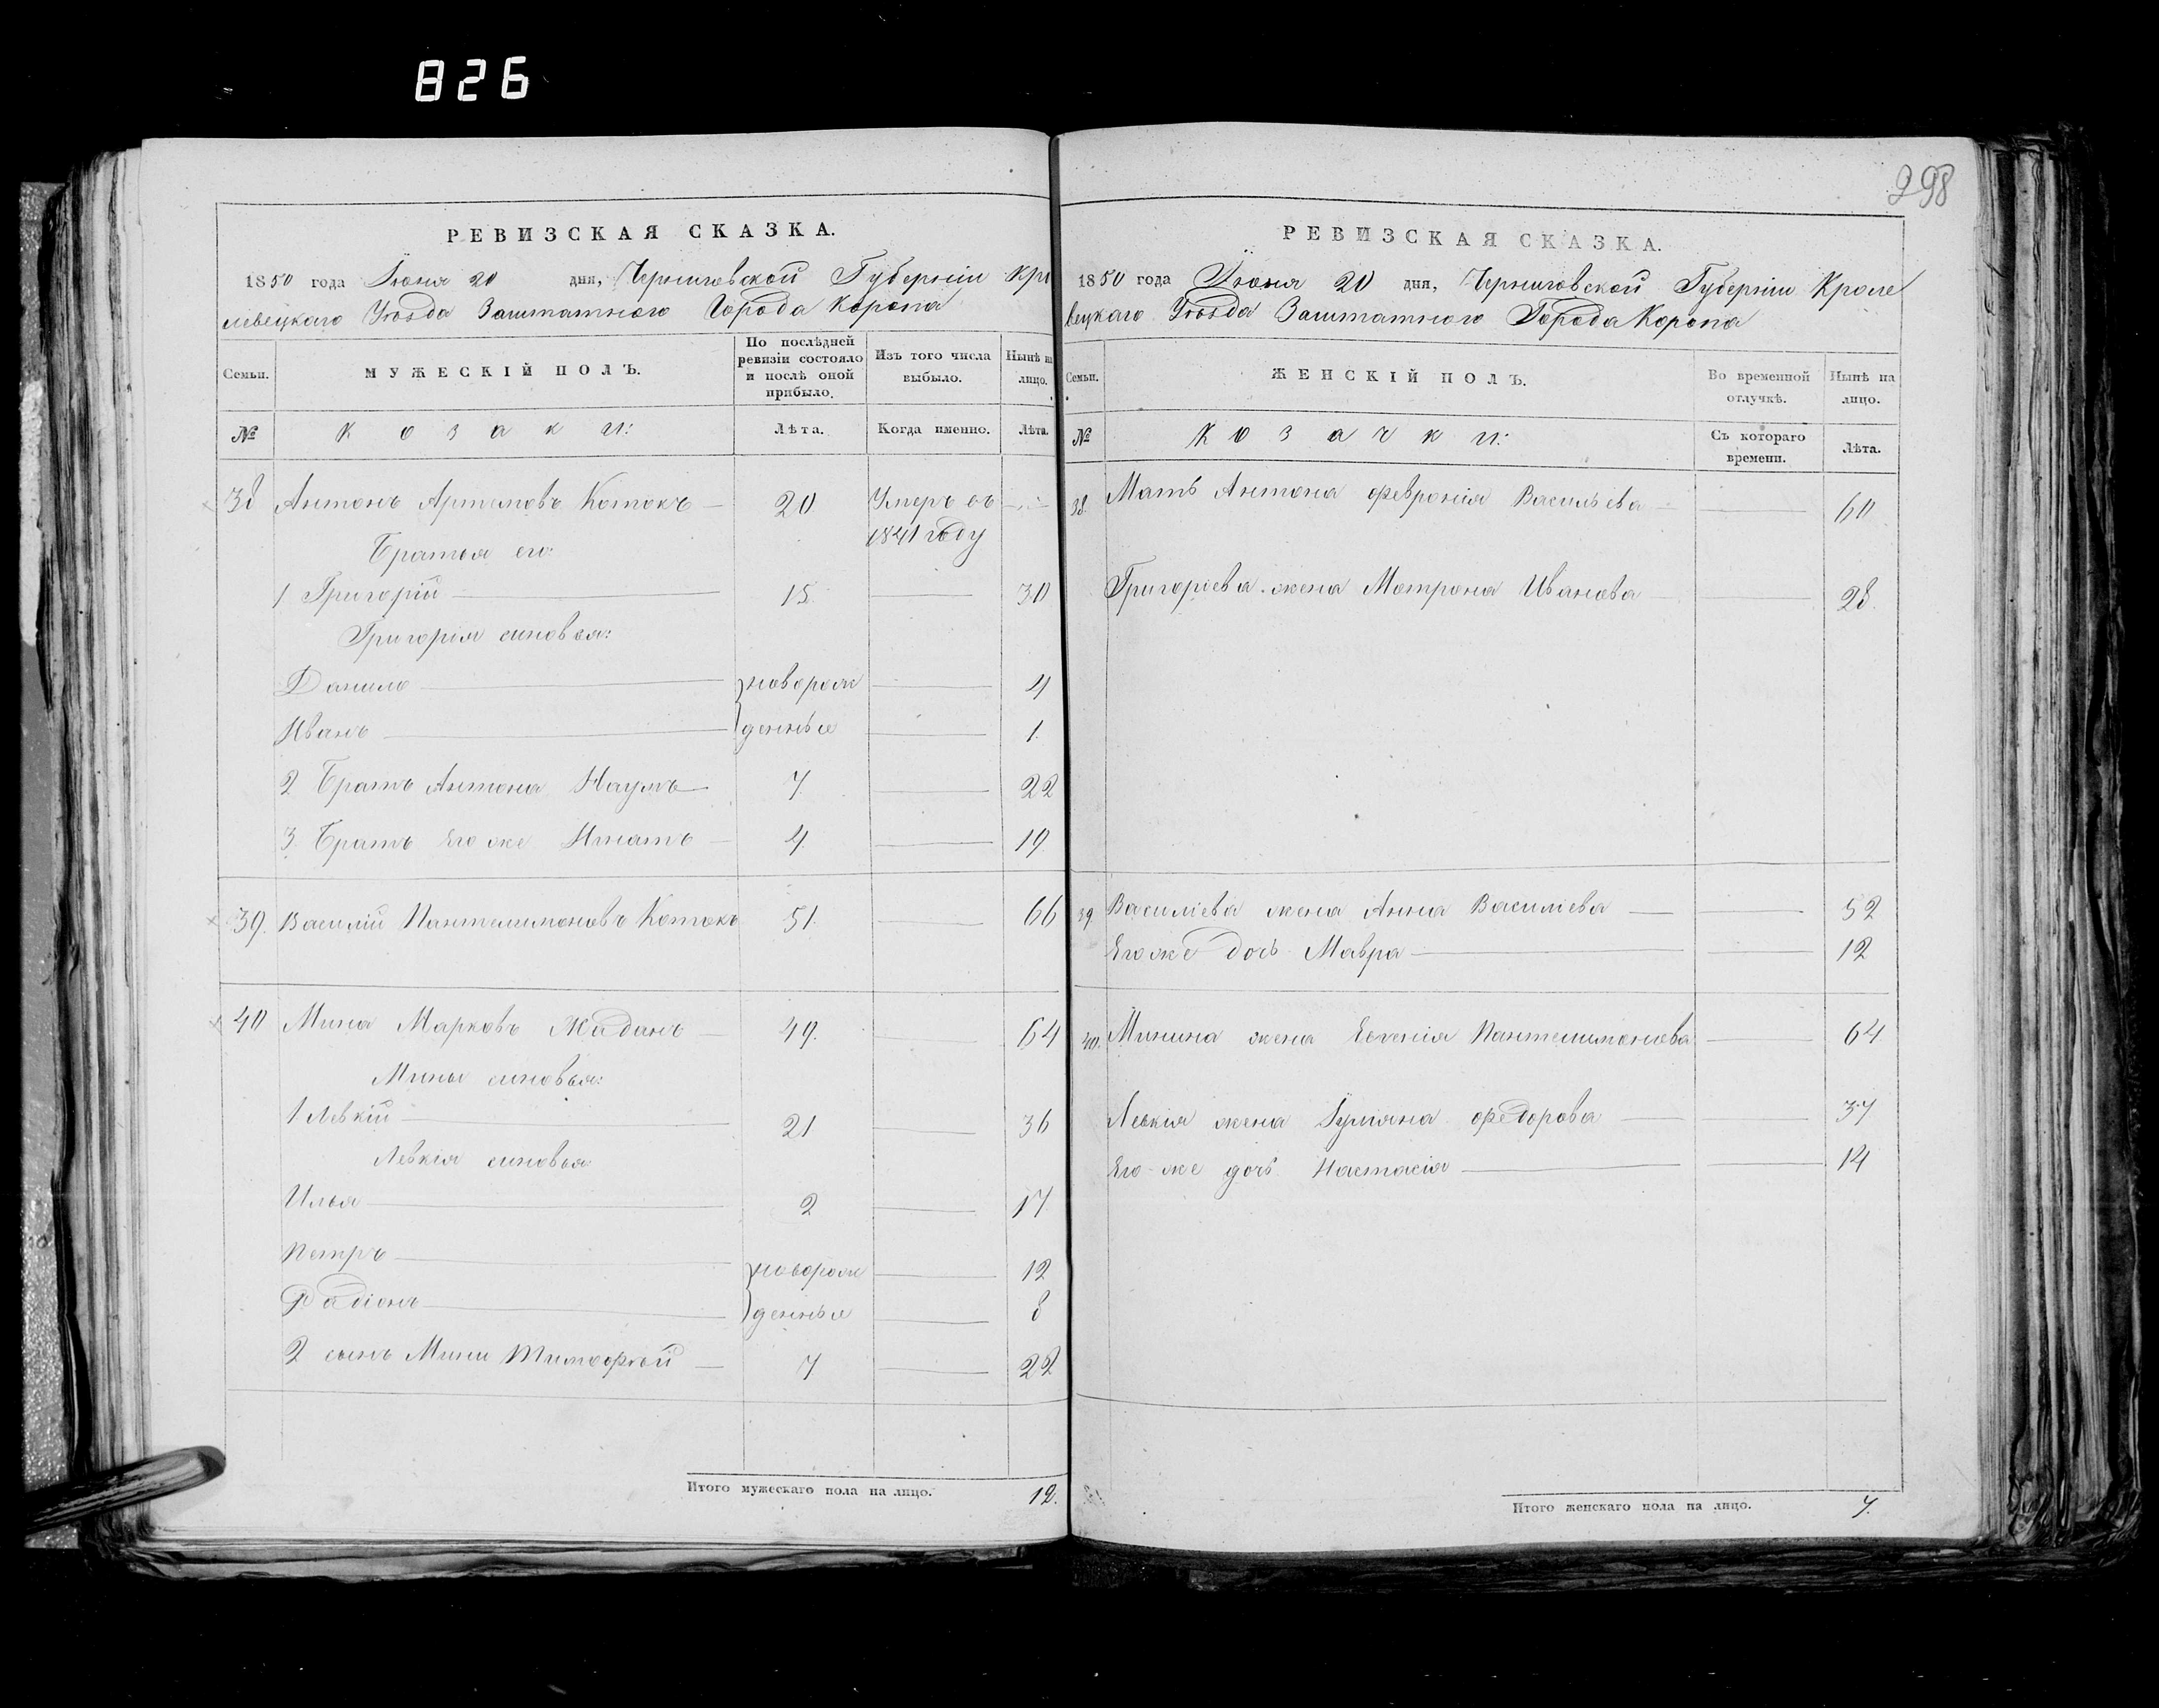 826
298
РЕВИЗСКАЯ СКАЗКА.
1850 года Іюня 20 дня, Черниговской Губерніи Кро
левецкаго Уѣзда Заштатного Города Коропа
Семьи. МУЖЕСКІЙ ПОЛЪ. По послѣдней ревизіи состояло и послѣ оной прибыло. Изъ того числа выбыло. Нынѣ на лицо.
№ Козаки: Лѣта. Когда именно. Лѣта.
38 Антонъ Артемовъ Котокъ — 20 Умеръ въ —
1841 году
Братья его:
1 Григорій — 15 — 30
Григорія синовья:
Данило — новорож — 4
Иванъ — денные — 1.
2 Братъ Антона Наумъ — 7. — 22
3. Братъ Его же Игнатъ — 4 — 19.
39. Василій Пантелимоновъ Котокъ 51. — 66
40 Мина Марковъ Жаданъ — 49. — 64
Мины синовья:
1 Левкій — 21 — 36
Левкія синовья
Илья — 2 — 17
Петръ — новорож — 12
Радіонъ — денные — 8
2 сынъ Мины Тимофѣй — 7 — 22
Итого мужескаго пола на лицо. 12.
РЕВИЗСКАЯ СКАЗКА.
1850 года Іюня 20 дня, Черниговской Губерніи Кроле
вецкаго Уѣзда Заштатного Города Коропа
Семьи. ЖЕНСКІЙ ПОЛЪ. Во временной отлучкѣ. Нынѣ на лицо.
№ Козачки: Съ котораго времени. Лѣта.
38. Мать Антона Февронія Васильева — 60
Григоріева жена Мотрона Иванова — 28.
39 Василіева жена Анна Василіева — 52
Его же дочь Мавра — 12
40. Минина жена Евгенія Пантелимонова — 64
Левкія жена Іуліяна Федорова — 37
Его-же дочь Настасія — 14
Итого женскаго пола на лицо. 7.